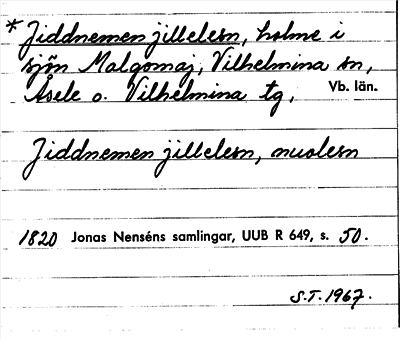 * Jiddnemen jillelesn, holme i
sjön Malgomaj, Vilhelmina sn,
Åsele o. Vilhelmina tg, Vb. län.
Jiddnemen jillelesn, nuolesn
1820 Jonas Nenséns samlingar, UUB R 649, s. 50.
S.T. 1967.